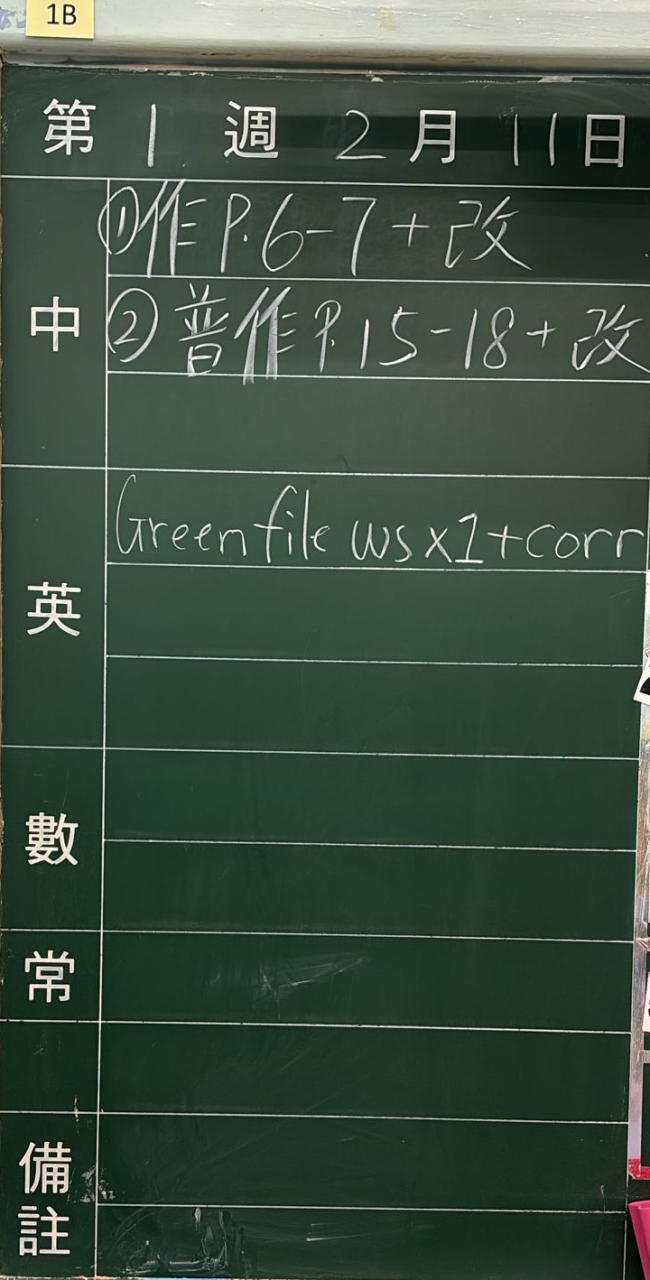 1B
第 1 週 2 月 11 日
中
①作 P.6-7 + 改
②普作 P.15-18 + 改
英
Green file ws x1+corr
數
常
備註